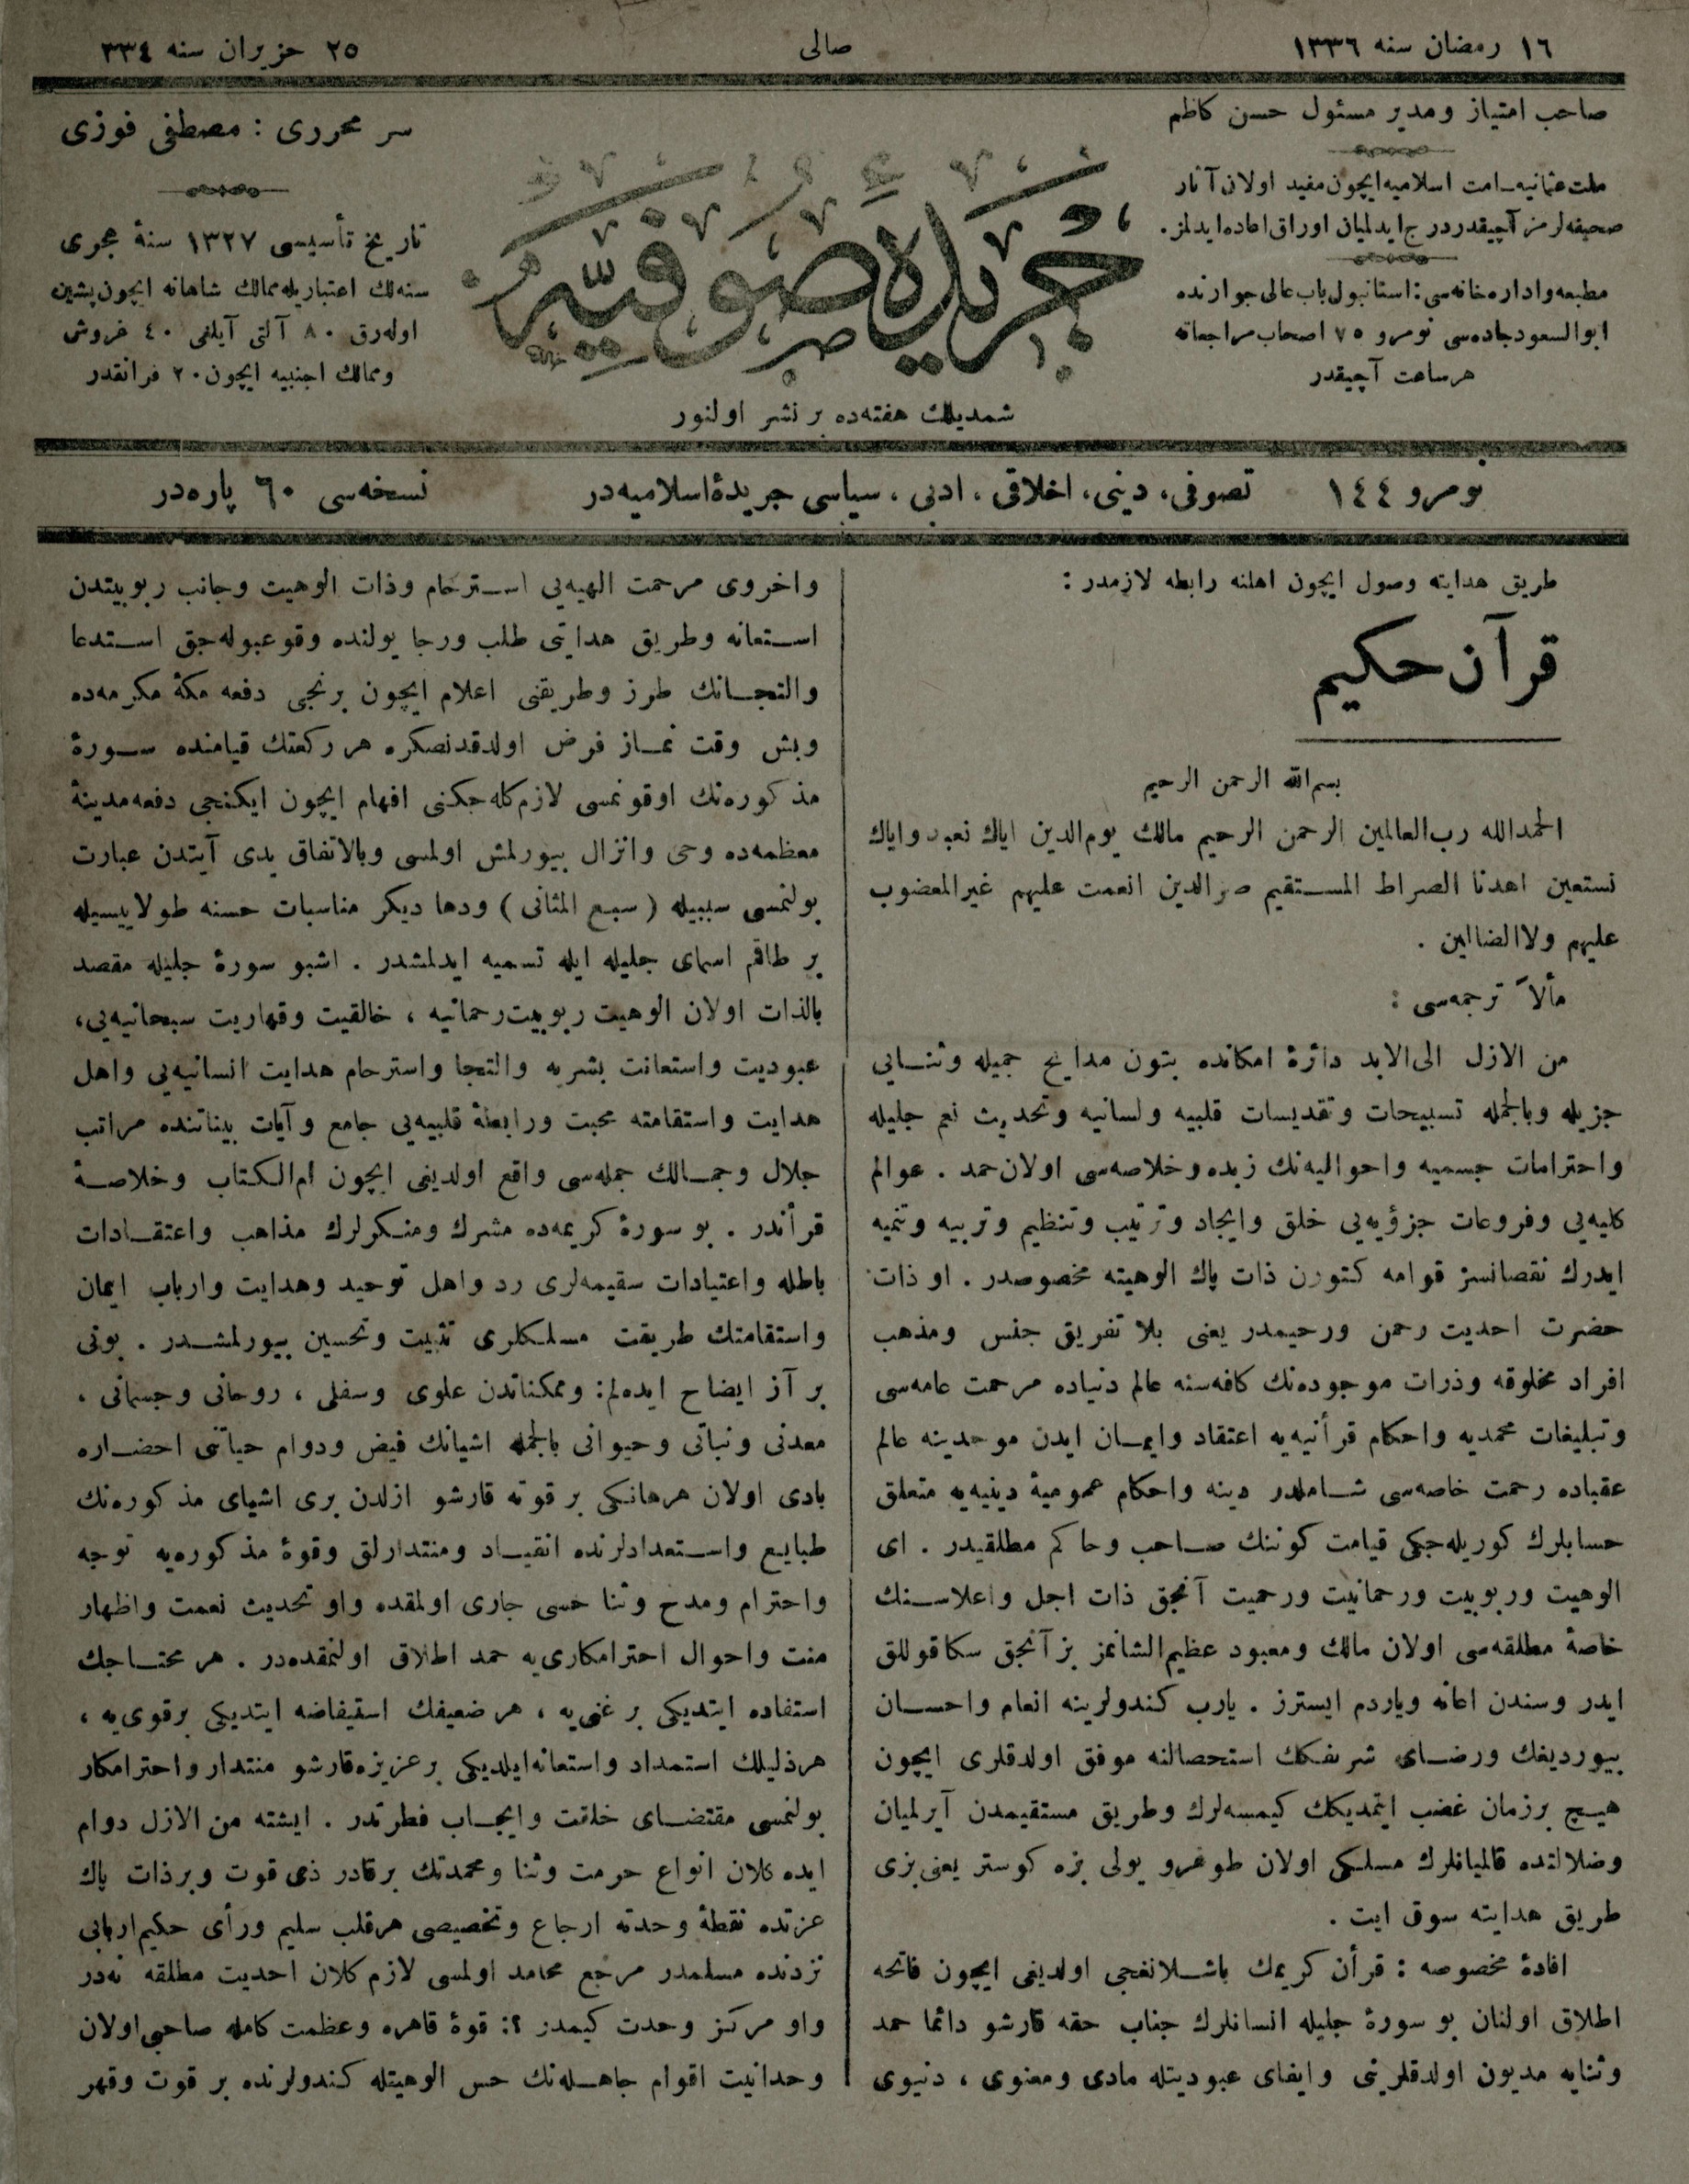 ١٦ رمضان سنه ١٣٣٦
صالی
٢٥ حزیران سنه ٣٣٤
صاحب امتیاز ومدیر مسئول حسن کاظم
ملت عثمانیه_امت اسلامیه ایچون مفید اولان آثار
صحیفه‌لرمز آچیقدر درج ایدلمیان اوراق اعاده ایدلمز.
مطبعه واداره‌خانه‌سی: استانبول باب عالی جوارنده
ابوالسعود جاده‌سی نومرو ٧٥ اصحاب مراجعاته
هر ساعت آچیقدر
جریدهٔ صوفیّه
شمدیلك هفته‌ده بر نشر اولنور
سر محرری : مصطفی فوزی
تاریخ تأسیسی ١٣٢٧ سنهٔ هجری
سنه‌لك اعتباریله ممالك شاهانه ایچون پشین
اوله‌رق ٨٠ آلتی آیلغی ٤٠ غروش
وممالك اجنبیه ایچون ٢٠ فرانقدر
نومرو ١٤٤
تصوفی، دینی، اخلاقی ، ادبی ، سیاسی جریدهٔ اسلامیه‌در
نسخه‌سی ٦٠ پاره‌در
طریق هدایته وصول ایچون اهلنه رابطه لازمدر :
قرآن حکیم
بسم الله الرحمن الرحیم
الحمدالله رب العالمین الرحمن الرحیم مالك یوم الدین ایاك نعبد وایاك
نستعین اهدنا الصراط المستقیم صر الدین انعمت علیهم غیر المعضوب
علیهم ولا الضاالین .
مألاً ترجمه‌سی :
من الازل الی الابد دائرهٔ امکانده بتون مدایح جمیله وثنایی
جزیله وبالجمله تسبیحات وتقدیسات قلبیه ولسانیه وتحدیث نعم جلیله
واحترامات جسمیه واحوالیه‌نك زبده وخلاصه‌سی اولان حمد . عوالم
کلیه‌یی وفروعات جزؤیه‌یی خلق وایجاد وترتیب وتنظیم وتربیه وتنمیه
ایدرك نقصانسز قوامه کتورن ذات پاك الوهیته مخصوصدر . او ذات
حضرت احدیت رحمن ورحیمدر یعنی بلا تفریق جنس ومذهب
افراد مخلوقه وذرات موجوده‌نك کافه‌سنه عالم دنیاده مرحمت عامه‌سی
وتبلیغات محمدیه واحکام قرأنیه‌یه اعتقاد وایمان ایدن موحدینه عالم
عقباده رحمت خاصه‌سی شاملدر دینه واحکام عمومیهٔ دینیه‌یه متعلق
حسابلرك کوریله‌جکی قیامت کوننك صاحب وحاکم مطلقیدر . ای
الوهیت وربوبیت ورحمانیت ورحمیت آنجق ذات اجل واعلاسنك
خاصهٔ مطلقه‌سی اولان مالك ومعبود عظیم الشانمز بز آنجق سکا قوللق
ایدر وسندن اعانه ویاردم ایسترز . یارب کندولرینه انعام واحسان
بیوردیغك ورضای شریفکك استحصالنه موفق اولدقلری ایچون
هیچ بر زمان غضب ایتمدیکك کیمسه‌لرك وطریق مستقیمدن آیرلمیان
وضلالتده قالمیانلرك مسلکی اولان طوغرو یولی بزه کوستر یعنی بزی
طریق هدایته سوق ایت .
افادهٔ مخصوصه : قرأن کریمك باشلانغجی اولدیغی ایچون فاتحه
اطلاق اولنان بو سورهٔ جلیله انسانلرك جناب حقه قارشو دائما حمد
وثنایه مدیون اولدقلرینی وایفای عبودیتله مادی ومعنوی ، دنیوی
واخروی مرحمت الهیه‌یی استرحام وذات الوهیت وجانب ربوبیتدن
استعانه وطریق هدایتی طلب ورجا یولنده وقوعبوله‌جق استدعا
والتجانك طرز وطریقنی اعلام ایچون برنجی دفعه مکهٔ مکرمه‌ده
وبش وقت نماز فرض اولدقدنصکره هر رکعتك قیامنده سورهٔ
مذکوره‌نك اوقونمسی لازم کله‌جکنی افهام ایچون ایکنجی دفعه مدینهٔ
معظمه‌ده وحی وانزال بیورلمش اولمسی وبالاتفاق یدی آیتدن عبارت
بولنمسی سببیله ( سبع المثانی ) ودها دیکر مناسبات حسنه طولاییسیله
بر طاقم اسمای جلیله ایله تسمیه ایدلمشدر . اشبو سورهٔ جلیله مقصد
بالذات اولان الوهیت ربوبیت رحمانیه ، خالقیت وقهاریت سبحانیه‌یی،
عبودیت واستعانت بشریه والتجا واسترحام هدایت انسانیه‌یی واهل
هدایت واستقامته محبت ورابطهٔ قلبیه‌یی جامع وآیات بیناتنده مراتب
جلال وجمالك جمله‌سی واقع اولدیغی ایچون ام الکتاب وخلاصهٔ
قرأندر . بو سورهٔ کریمه‌ده مشرك ومنکرلرك مذاهب واعتقادات
باطله واعتیادات سقیمه‌لری رد واهل توحید وهدایت وارباب ایمان
واستقامتك طریقت مسلکلری تثبیت وتحسین بیورلمشدر . بونی
بر آز ایضاح ایده‌لم: وممکناتدن علوی وسفلی ، روحانی وجسمانی ،
معدنی ونباتی وحیوانی بالجمله اشیانك فیض ودوام حیاتنی احضاره
بادی اولان هرهانکی بر قوته قارشو ازلدن بری اشیای مذکوره‌نك
طبایع واستعدادلرنده انقیاد ومنتدارلق وقوهٔ مذکوره‌یه توجه
واحترام ومدح وثنا حسی جاری اولمقده واو تحدیث نعمت واظهار
منت واحوال احترامکاری‌یه حمد اطلاق اولنمقده‌در . هر محتاجك
استفاده ایتدیکی بر غنی‌یه ، هر ضعیفك استیفاضه ایتدیکی بر قوی‌یه ،
هر ذلیلك استمداد واستعانه ایلدیکی بر عزیزه قارشو منتدار واحترامکار
بولنمسی مقتضای خلقت وایجاب فطرتدر . ایشته من الازل دوام
ایده کلان انواع حرمت وثنا ومحمدتك بر قادر ذی قوت وبر ذات پاك
عزتده نقطهٔ وحدته ارجاع وتخصیصی هر قلب سلیم ورأی حکیم اربابی
نزدنده مسلمدر مرجع محامد اولمسی لازم کلان احدیت مطلقه نه‌در
واو مرکز وحدت کیمدر ؟: قوهٔ قاهره وعظمت کامله صاحبی اولان
وحدانیت اقوام جاهله‌نك حس الوهیتله کندولرنده بر قوت وقهر